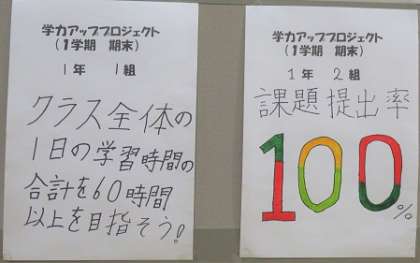 学力アッププロジェクト
(1学期 期末)
1年 1組
クラス全体の
1日の学習時間の
合計を60時間
以上を目指そう!
学力アッププロジェクト
(1学期 期末)
1年 2組
課題提出率
100%